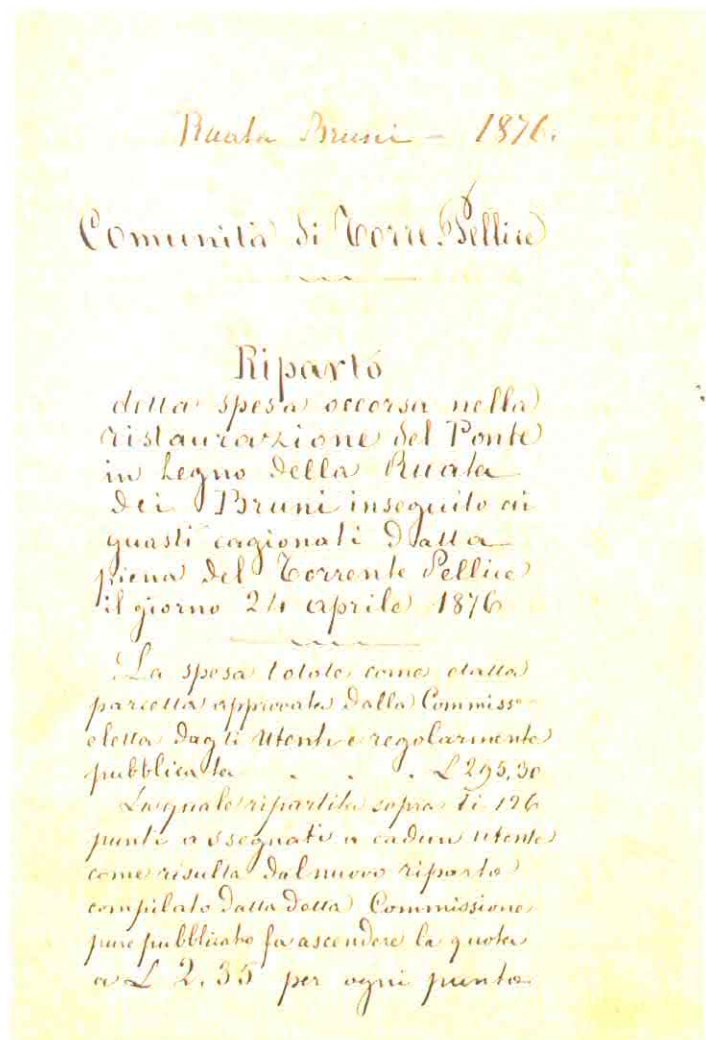 Ruata Bruni - 1876.
Comunità di Torre-Pellice
Riparto
della spesa occorsa nella
ristaurazione del Ponte
in Legno della Ruata
dei Bruni inseguito ai
guasti cagionati dalla
piena del Torrente Pellice
il giorno 24 aprile 1876
La spesa totale come dalla
parcella approvata dalla Commiss.e
eletta dagli Utenti e regolarmente
pubblicata . . . L 295,30
La quale ripartita sopra li 126
punti assegnati a cadun utente
come risulta dal nuovo riparto
compilato dalla detta Commissione
pure pubblicato fa ascendere la quota
a L 2.35 per ogni punto